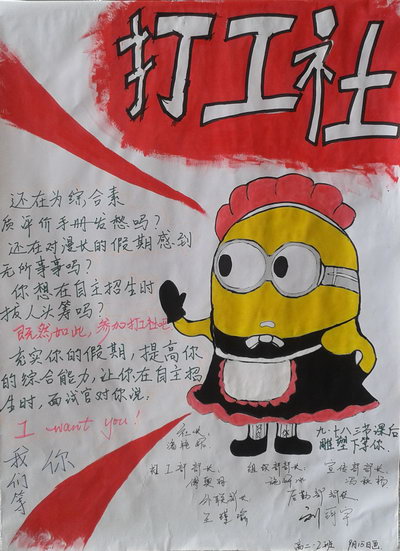 打工社
还在为综合素
质评价手册发愁吗？
还在对漫长的假期感到
无所事事吗？
你想在自主招生时
拔人头筹吗？
既然如此，参加打工社吧
充实你的假期，提高你
的综合能力，让你在自主招
生时，面试官对你说：
I want you!
我们等你
九·十八三节课后
雕塑下等你
社长
打工部部长
组织部部长
宣传部部长
外联部长
后勤部部长
高二·2班 9月15日